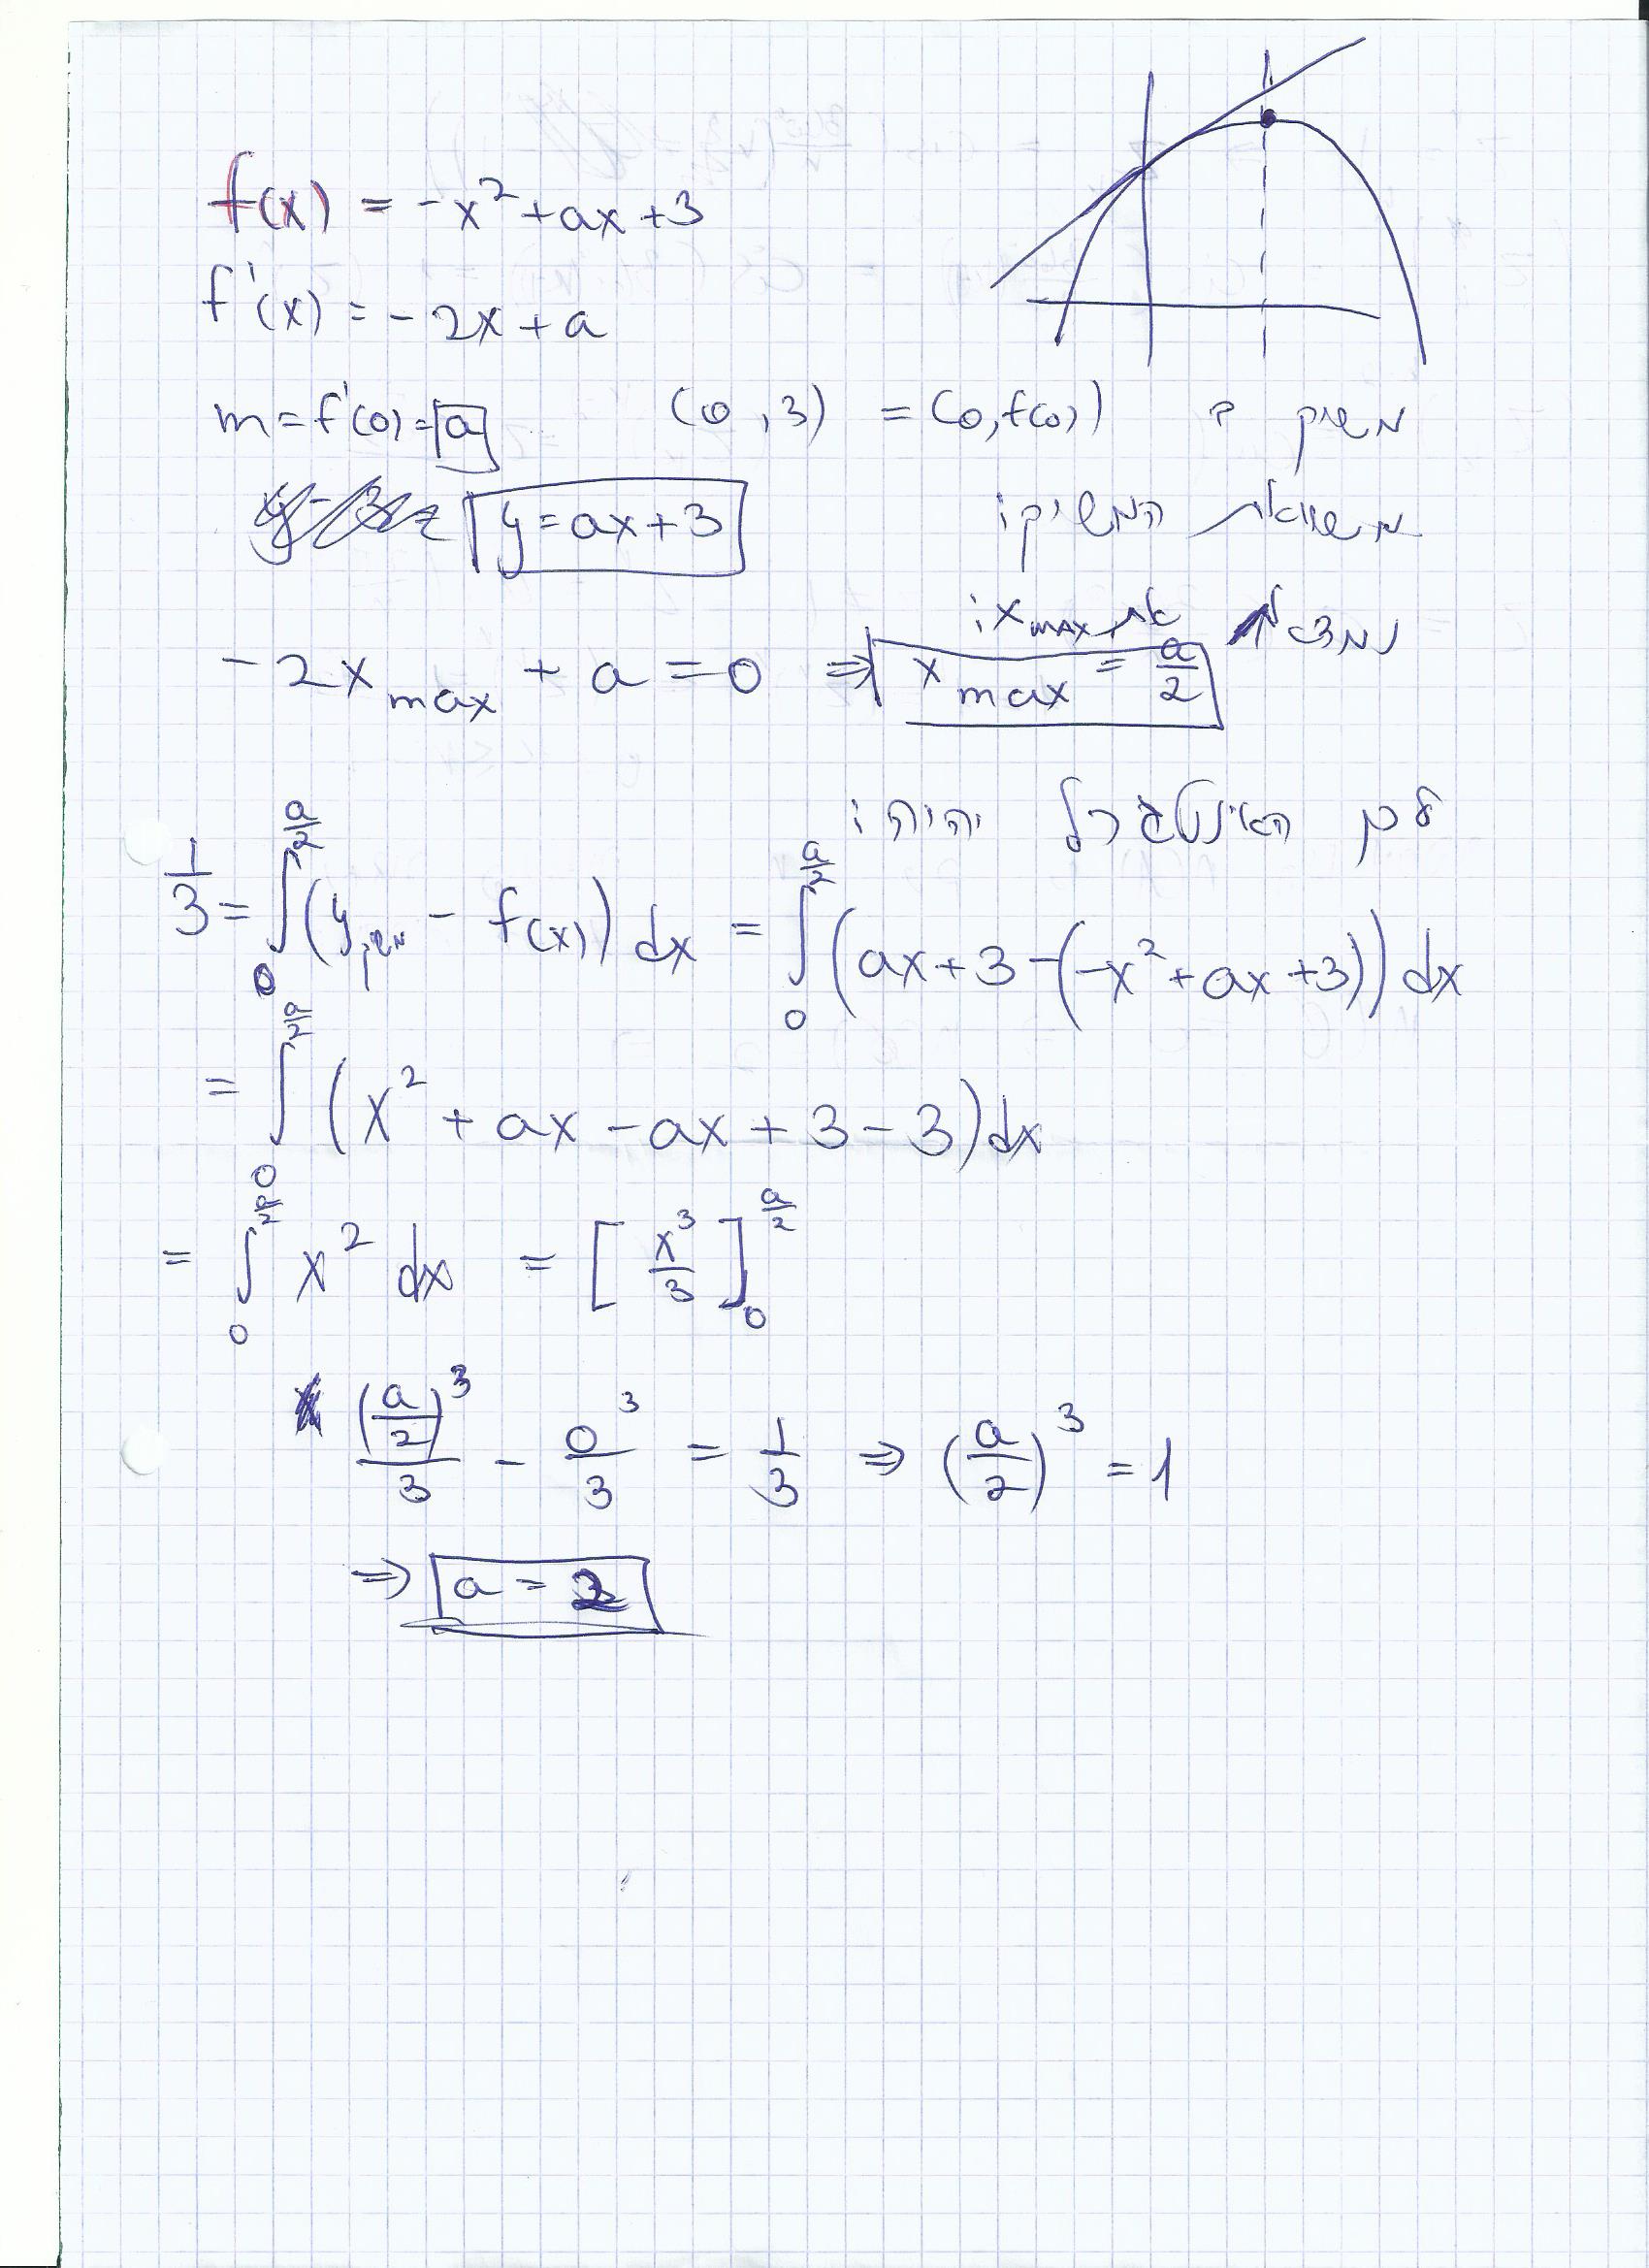 f(x) = -x² + ax + 3
f'(x) = -2x + a
m = f'(0) = a (0, 3) = (0, f(0)) משיק ב
y = ax + 3 משוואת המשיק:
נמצא את x max:
-2x max + a = 0 ⇒ x max = a/2
לכן האינטגרל יהיה:
1/3 = ∫₀^(a/2) (y משיק - f(x)) dx = ∫₀^(a/2) (ax + 3 - (-x² + ax + 3)) dx
= ∫₀^(a/2) (x² + ax - ax + 3 - 3) dx
= ∫₀^(a/2) x² dx = [x³/3]₀^(a/2)
(a/2)³/3 - 0³/3 = 1/3 ⇒ (a/2)³ = 1
⇒ a = 2